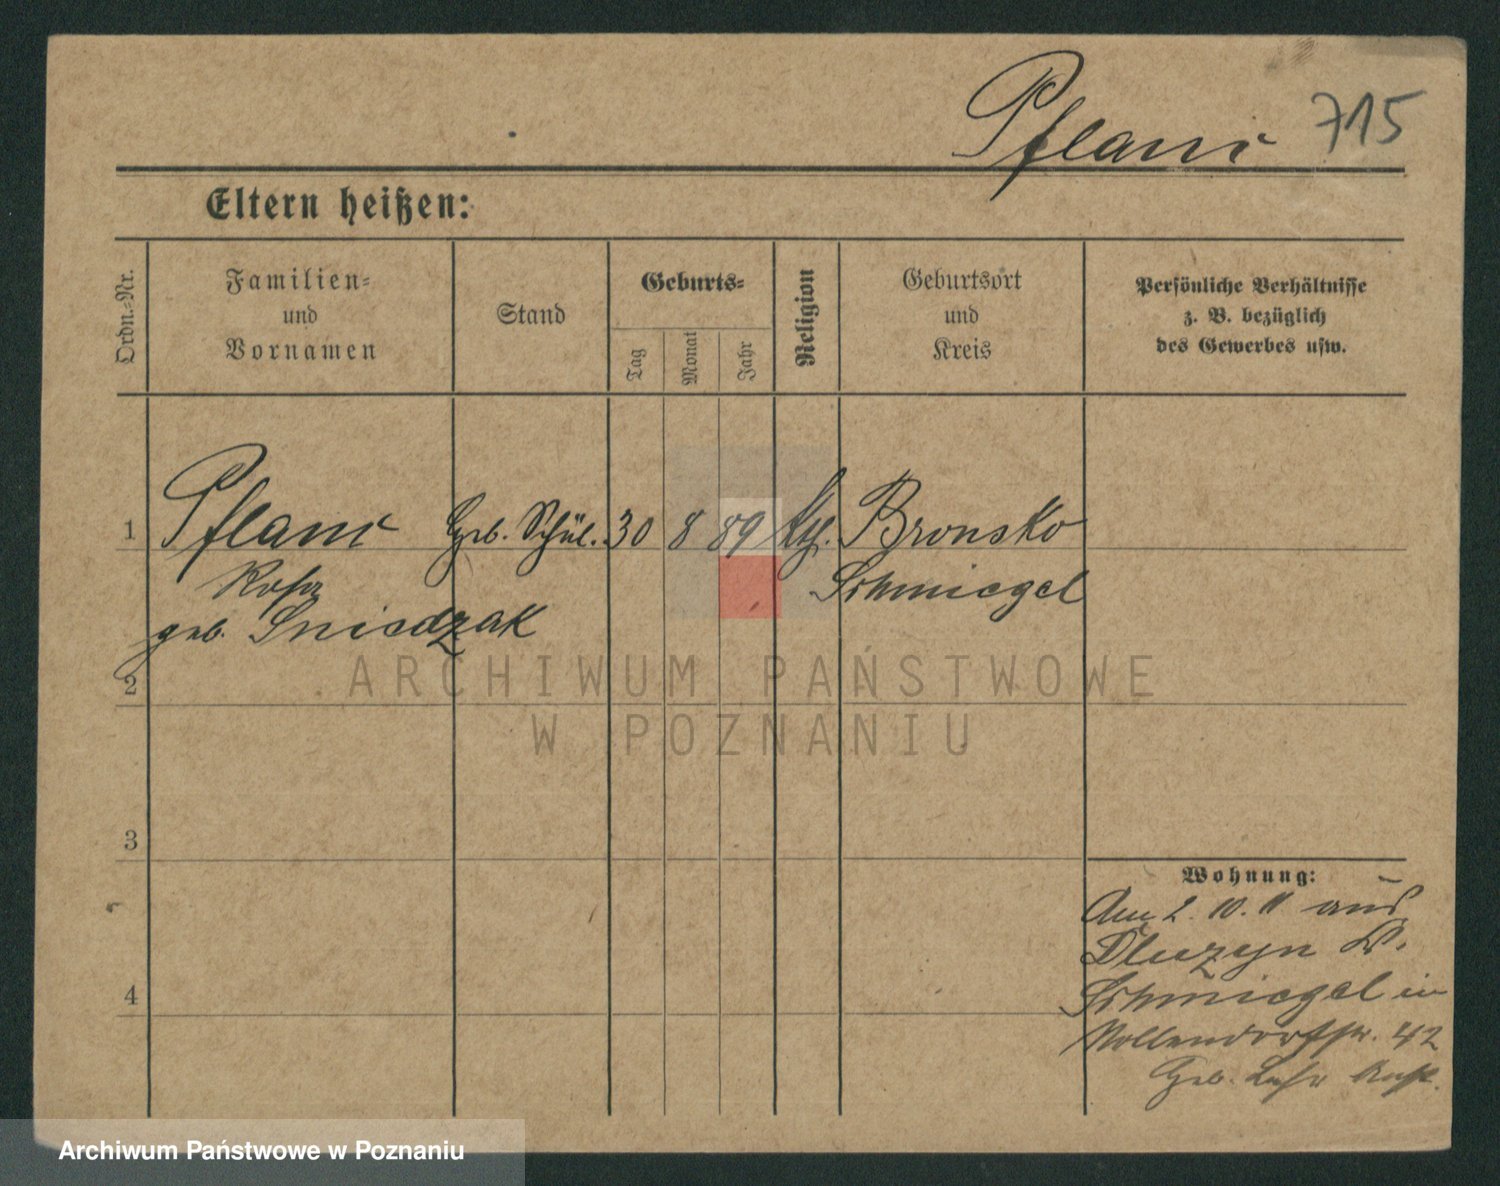 Pflanz 715
Eltern heißen:
Ordn.-Nr.
Familien- und Vornamen
Stand
Geburts-
Tag
Monat
Jahr
Religion
Geburtsort und Kreis
Persönliche Verhältnisse
z. B. bezüglich
des Gewerbes usw.
1 Pflanz Geb. Schül. 30 8 89 kth. Bronsko
Rosa Schmiegel
geb. Sniedzak
2
ARCHIWUM PAŃSTWOWE
W POZNANIU
3
Wohnung:
Am 2. 10. 11 aus
Dluzyn K.
4
Schmiegel in
Nollendorfstr. 42
Geb. Lehr
Archiwum Państwowe w Poznaniu